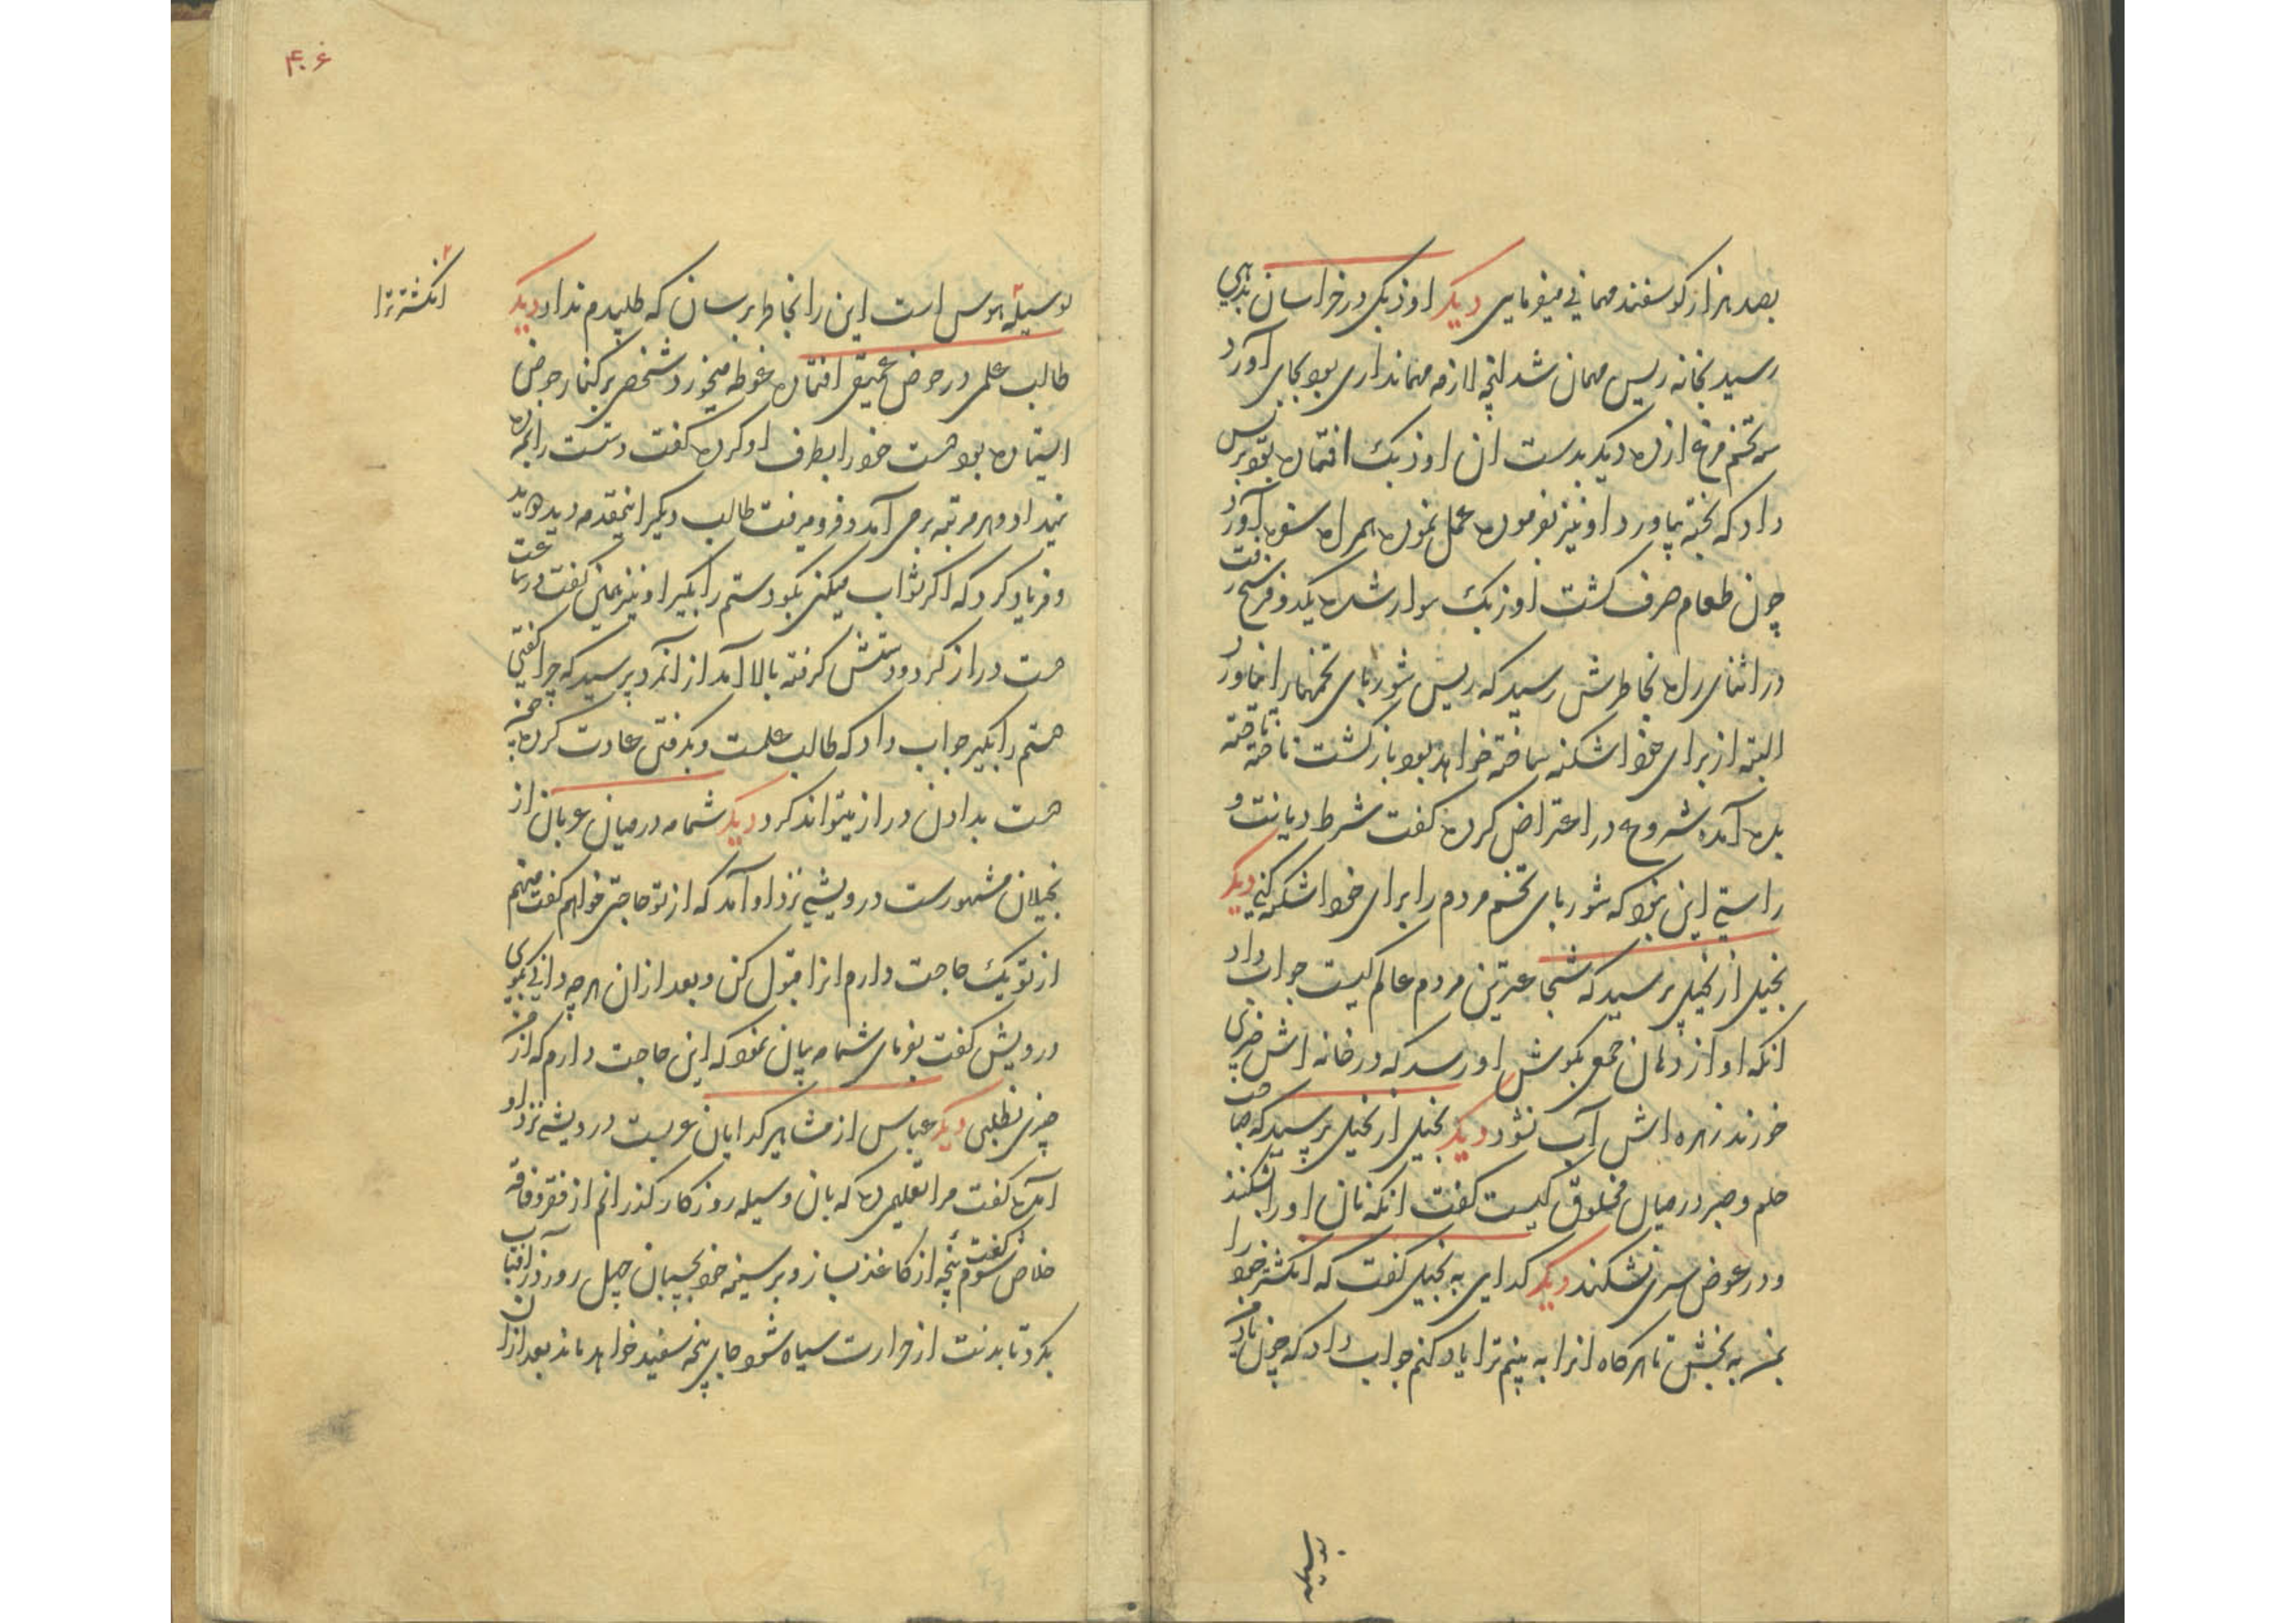 بصد هزار کوسفند مهمانی میفرمایی دیکر اوزبکی در خراسان بدیهی
رسید بخانه ریس مهمان شد انچه لازمه مهمانداری بود بجای آورد
سه تخم مرغ ازده دیکر بدست ان اوزبک افتاده بود بریس
داد که پخته بیاورد او نیز بفرموده عمل نموده همراه سفره آورد
چون طعام صرف کشت اوزبک سوار شده یکدو فرسخ رفت
در اثنای راه بخاطرش رسید که ریس شوربای تخمها را نیاورد
البته از برای خود اشکنه ساخته خواهد بود باز کشت تاخته تاخته
بده آمده شروع در اعتراض کرده کفت شرط دیانت و
راستی این نبود که شوربای تخم مردم را برای خود اشکنه کنی دیکر
بخیل از بخیلی پرسید که شجاعترین مردم عالم کیست جواب داد
انکه اواز دهان جمعی بکوش او رسد که در خانه اش چیزی
خورند زهره اش آب نشود دیکر بخیلی از بخیلی پرسید که صاحب
حلم و صبر در میان مخلوق کیست کفت انکه نان او را شکنند
و در عوض سری نشکند دیکر کدایی به بخیلی کفت که انکشتر خود را
بمن به بخش تا هرکاه انرا به بینم ترا یاد کنم جواب داد که چون یاد من
بوسیله
۴۰۶
بوسیله هوس است این را بخاطر برسان که طلبیدم نداد دیکر
انکشتر ترا
طالب علمی در حوض عمیق افتاده غوطه میخورد شخصی بر کنار حوض
ایستاده بود دست خود را بطرف او کرده کفت دستت را بمن ده
نمیداد و هر مرتبه بر می آمد و فرو میرفت طالب دیکر اینمقدمه دید دوید
و فریاد کرد که اکر ثواب میکنی بکو دستم را بکیر او نیز چنین کفت در ساعت
دست دراز کرد و دستش کرفته بالا آمد از انمرد پرسید که چرا کفتی
دستم را بکیر جواب داد که طالب علمست و بکرفتن عادت کرده
دست بدادن دراز نیتواند کرد دیکر شمامه در میان عربان از
بخیلان مشهورست درویشی نزد او آمد که از تو حاجتی خواهم کفت منهم
از تو یک حاجت دارم انرا قبول کن و بعد از ان هر چه دانی بکوی
درویش کفت بفرمای شمامه بیان نمود که این حاجت دارم که از من
چیزی نطلبی دیکر عباس از مشاهیر کدایان عربست درویشی نزد او
آمده کفت مرا تعلیمی ده که بان وسیله روزکار کذرانم از فقر و فاقه
خلاص شوم کفت پنجه از کاغذ بساز و بر سینه خود بچسبان چهل روز در آفتاب
بکرد تا بدنت از حرارت سیاه شود جای پنجه سفید خواهد ماند بعد از ان